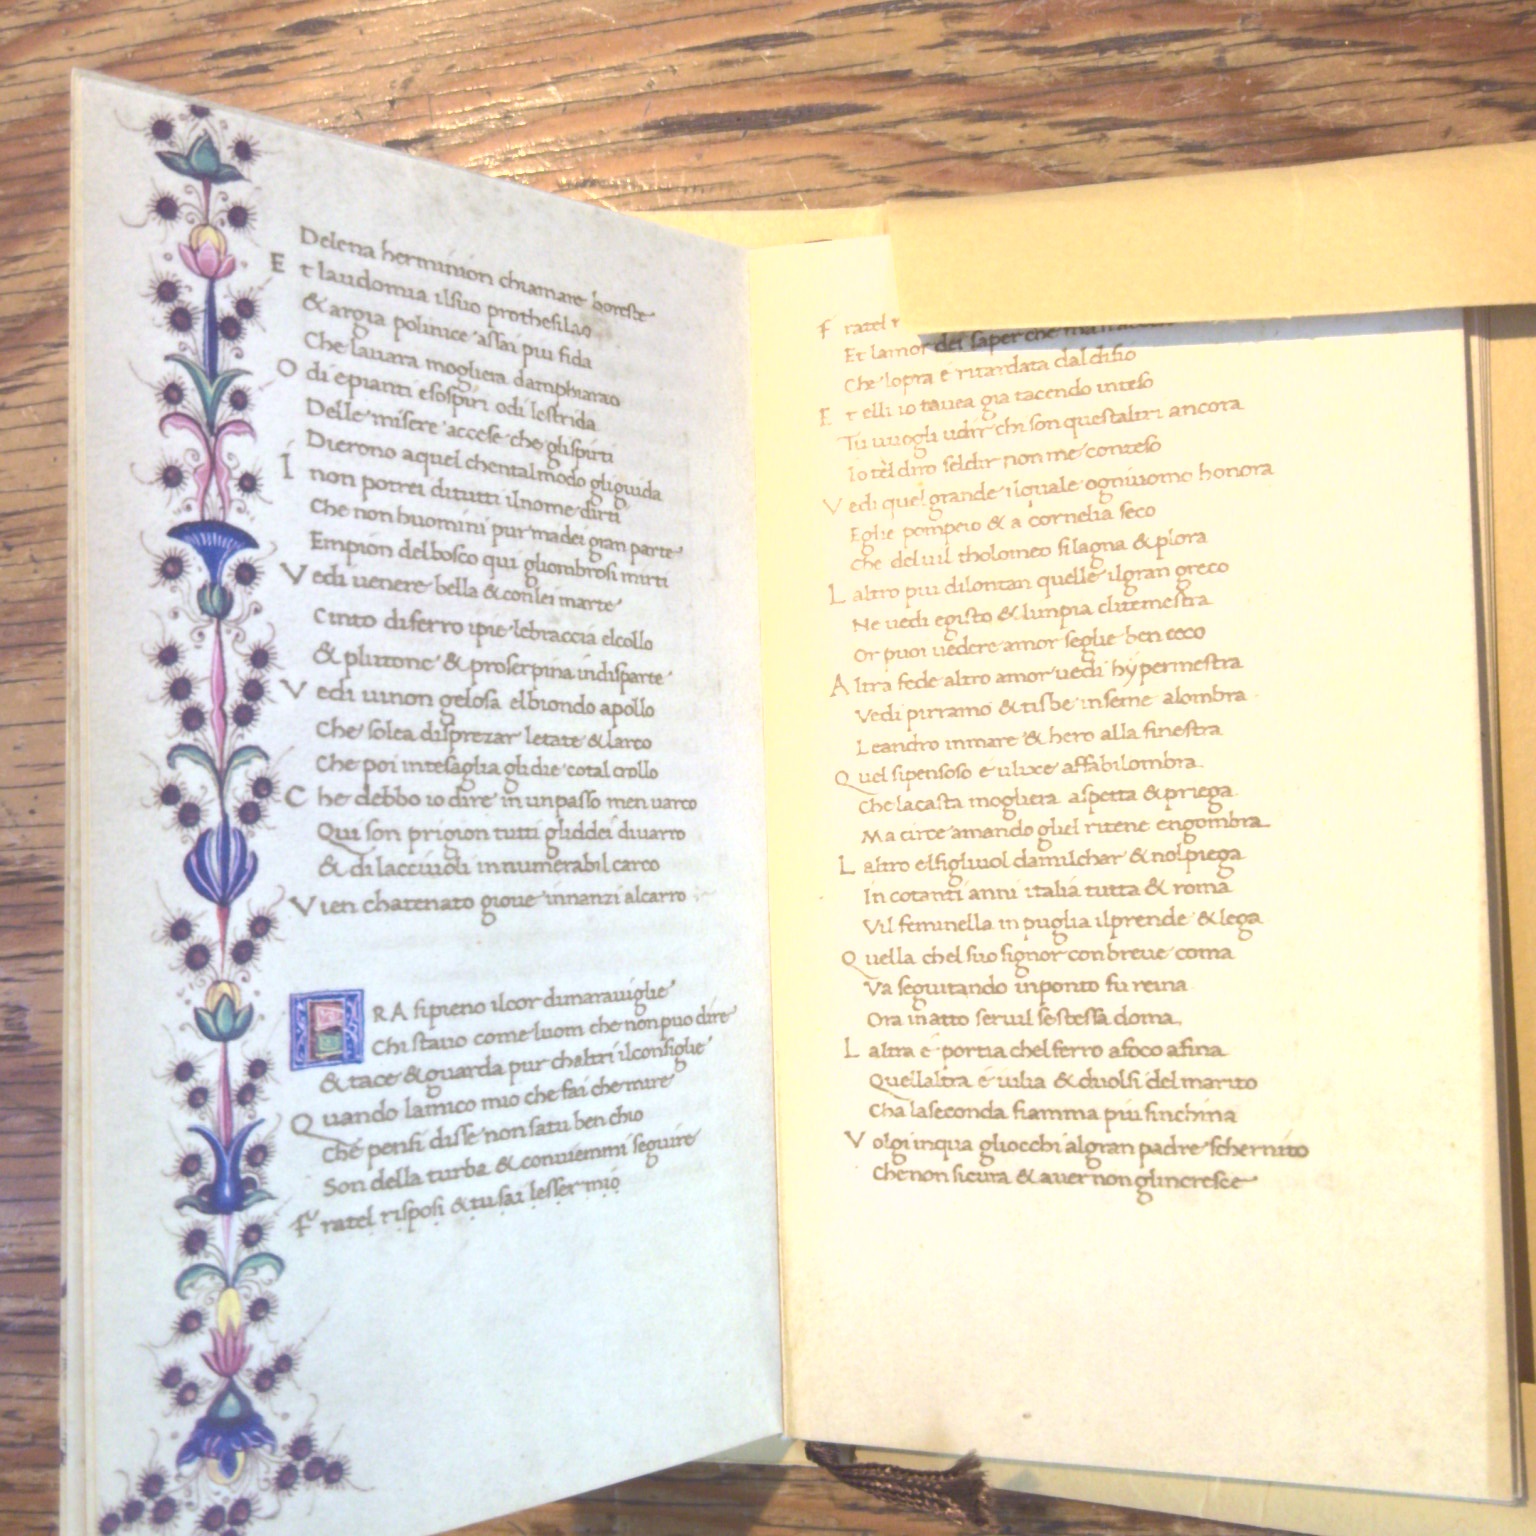 Delena herminion chiamare horeste
E t laudomia ilsuo prothesilao
& argia polinice assai piu fida
Che lauara mogliera damphiarao
O di epianti esospiri odi lestrida
Delle misere accese che glispirti
Dierono aquel chental modo gliguida
I non potrei ditutti ilnome dirti
Che non huomini pur madei gran parte
Empion delbosco qui gliombrosi mirti
V edi uenere bella & conlei marte
Cinto diferro ipie lebraccia elcollo
& plutone & proserpina indisparte
V edi iunon gelosa elbiondo apollo
Che solea disprezar letate & larco
Che poi intesaglia glidie cotal crollo
C he debbo io dire in unpasso men uarco
Qui son prigion tutti gliddei diuarro
& di lacciuoli innumerabil carco
V ien chatenato gioue innanzi alcarro
RA sipieno ilcor dimarauiglie
Chi stauo come luom che non puo dire
& tace & guarda pur chaltri ilconsiglie
Q uando lamico mio che fai che mire
Che pensi disse non satu ben chio
Son della turba & conuiemmi seguire
F ratel risposi & tu sai lesser mio
F ratel r
Et lamor dei saper che
Che lopra e ritardata dal disio
E t elli io tauea gia tacendo inteso
Tu uuogli udir chi son questaltri ancora
Io tel diro seldir non me conteso
V edi quel grande ilquale ogniuomo honora
Eglie pompeio & a cornelia seco
Che deluil tholomeo silagna & plora
L altro piu dilontan quelle ilgran greco
Ne uedi egisto & lunpia clitemestra
Or puoi uedere amor seglie ben ceco
A ltra fede altro amor uedi hypermestra
Vedi pirramo & tisbe inseme alombra
Leandro inmare & hero alla finestra
Q uel sipensoso e ulixe affabilombra
Che lacasta mogliera aspetta & priega
Ma circe amando gliel ritene engombra
L altro elfigliuol damilchar & nolpiega
In cotanti anni italia tutta & roma
Vil feminella in puglia ilprende & lega
Q uella chel suo signor con breue coma
Va seguitando inponto fu reina
Ora inatto seruil sestessa doma
L altra e portia chel ferro afoco afina
Quellaltra e iulia & duolsi del marito
Cha laseconda fiamma piu sinchina
V olgi inqua gliocchi algran padre schernito
Che non sicura & auer non glincresce